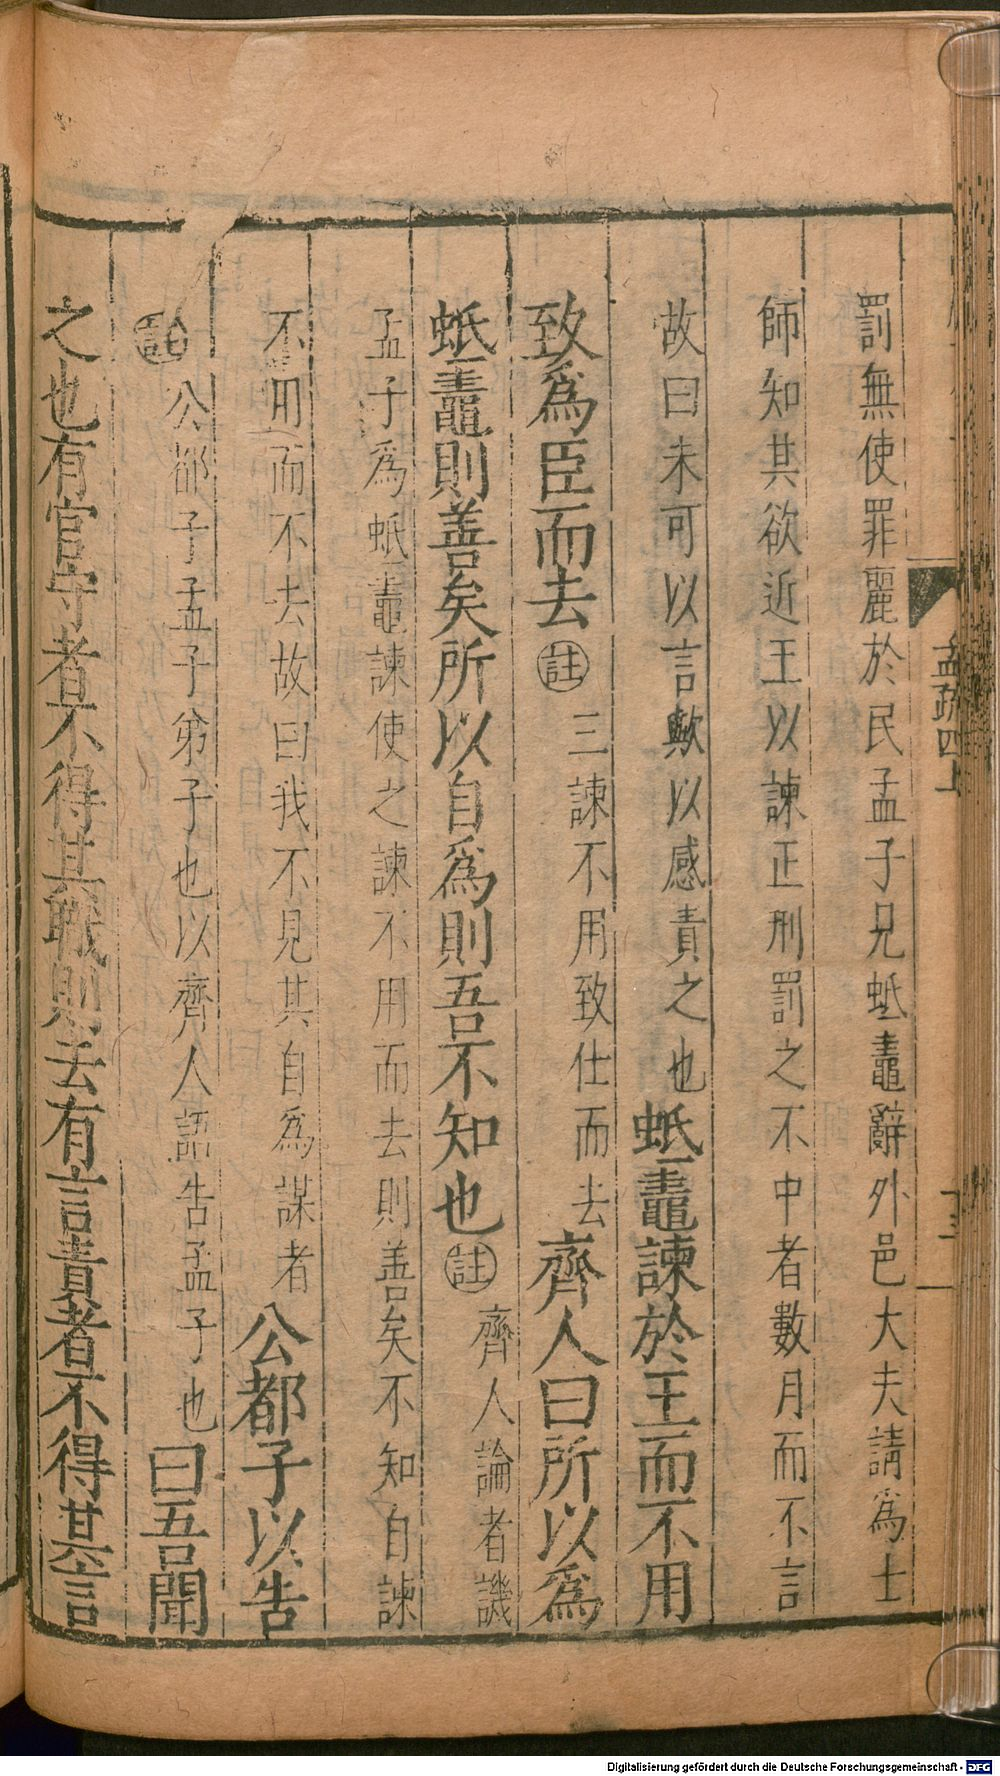 罰無使罪麗於民孟子兄蚳鼃辭外邑大夫請爲士
師知其欲近王以諫正刑罰之不中者數月而不言
故曰未可以言歟以感責之也蚳鼃諫於王而不用
致爲臣而去註三諫不用致仕而去齊人曰所以爲
蚳鼃則善矣所以自爲則吾不知也註齊人論者譏
孟子爲蚳鼃諫使之諫不用而去則善矣不知自諫
不用而不去故曰我不見其自爲謀者公都子以告
註公都子孟子弟子也以齊人語告孟子也曰吾聞
之也有官守者不得其職則去有言責者不得其言
孟疏四上
Digitalisierung gefördert durch die Deutsche Forschungsgemeinschaft - DFG